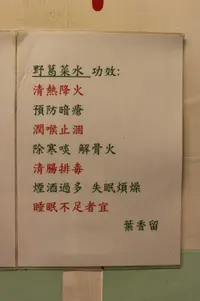 野葛菜水 功效:
清熱降火
預防暗瘡
潤喉止涸
除寒啖 解骨火
清腸排毒
煙酒過多 失眠煩燥
睡眠不足者宜
葉香留